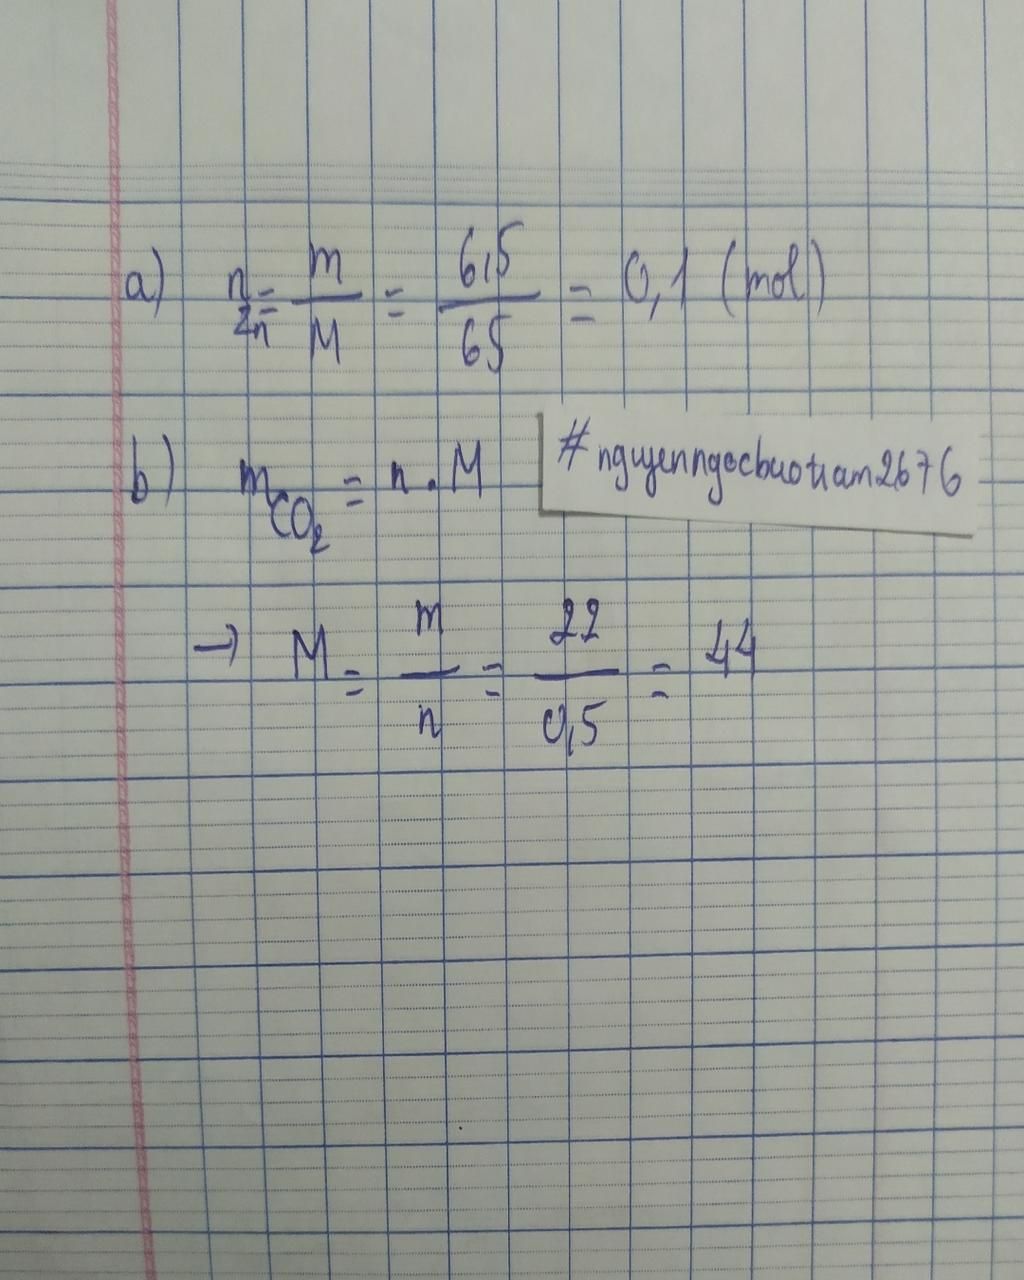 a) n Zn = m/M = 6,5/65 = 0,1 (mol)
b) mCO₂ = n . M
#nguyenngocbaotram2676
→ M = m/n = 22/0,5 = 44